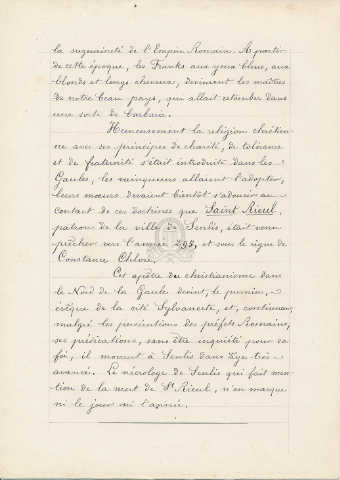 la suzeraineté de l'Empire Romain. A partir
de cette époque, les Franks aux yeux bleus, aux
blonds et longs cheveux, devinrent les maîtres
de notre beau pays, qui allait retomber dans
une sorte de barbarie.
Heureusement la religion chrétien-
ne avec ses principes de charité, de tolérance
et de fraternité s'était introduite dans les
Gaules, les vainqueurs allaient l'adopter,
leurs mœurs devaient bientôt s'adoucir au
contact de ces doctrines que Saint Rieul,
patron de la ville de Senlis, était venu
prêcher vers l'année 295, et sous le règne de
Constance Chlore.
Cet apôtre du christianisme dans
le Nord de la Gaule devint, le premier,
évêque de la cité Sylvanecte, et, continuant,
malgré les persécutions des préfets Romains,
ses prédications, sans être inquiété pour sa
foi, il mourut à Senlis dans l'âge très
avancé. Le nécrologe de Senlis qui fait men-
tion de la mort de St Rieul, n'en marque
ni le jour ni l'année.